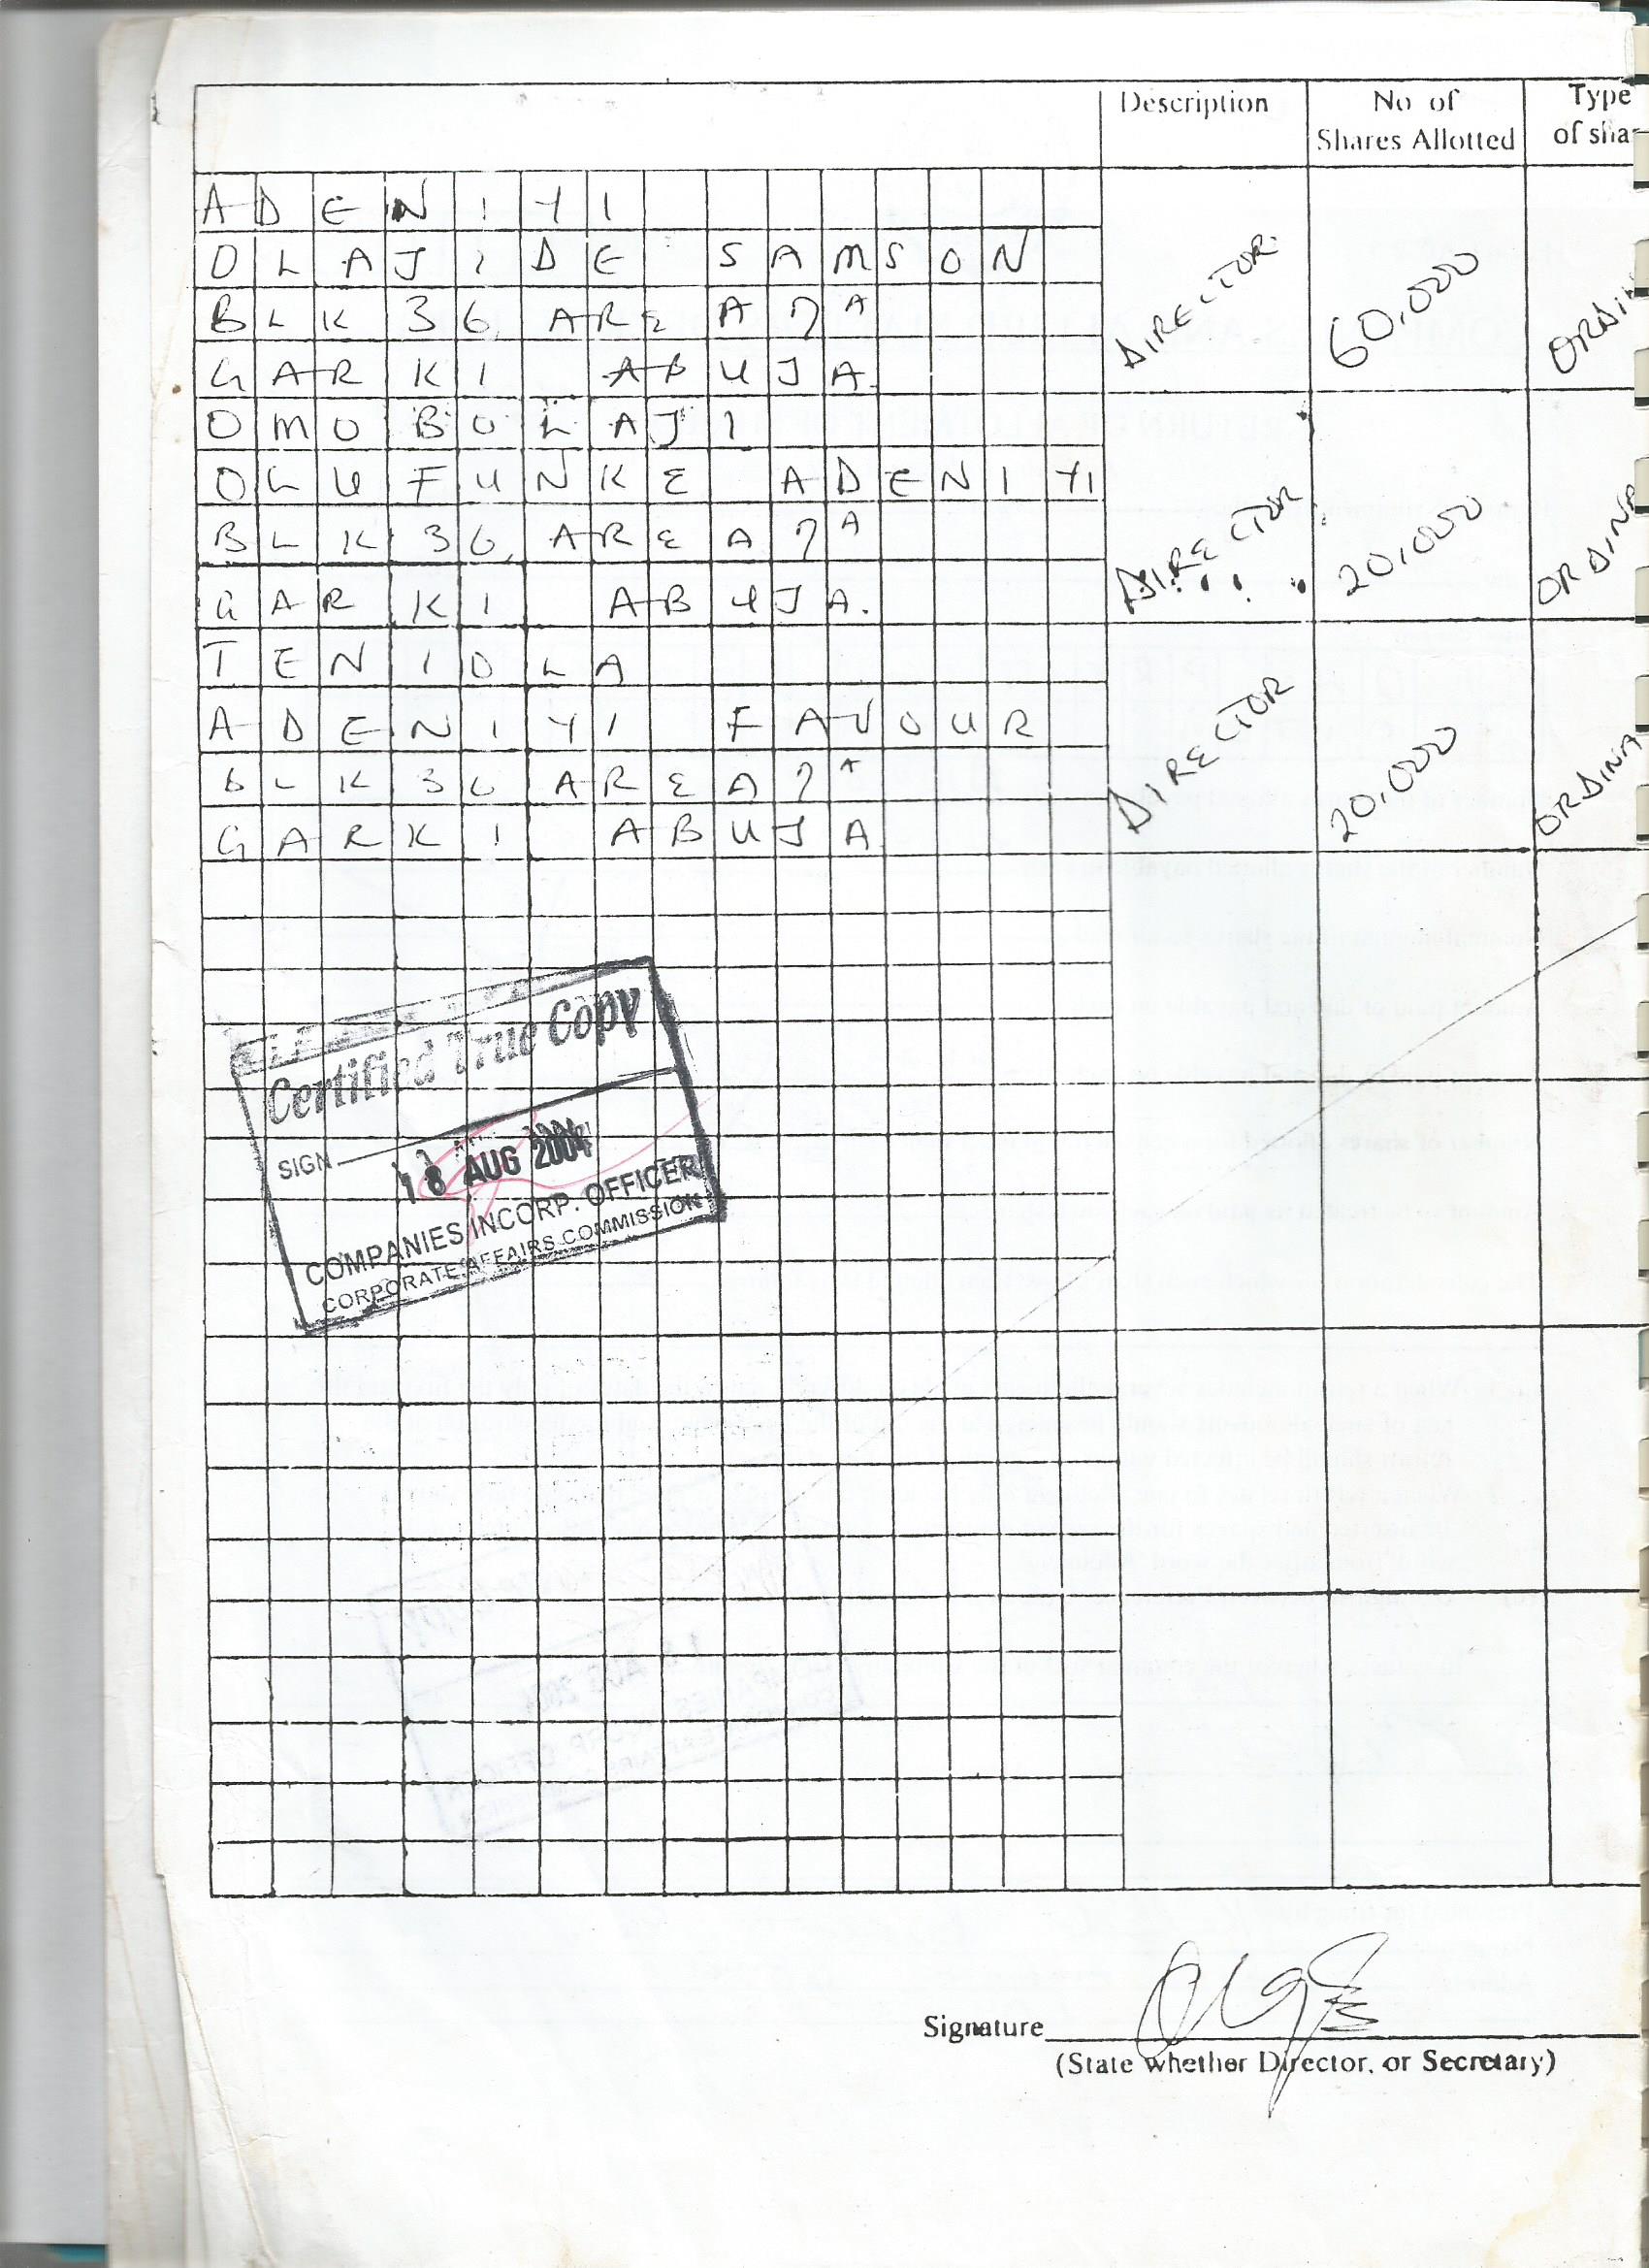 Description
No of
Shares Allotted
Type
of shar
ADENIYI
OLAJIDE SAMSON
BLK 36, AREA 7A
GARKI ABUJA.
DIRECTOR
60,000
ORDIN
OMOBOLAJI
OLUFUNKE ADENIYI
BLK 36, AREA 7A
GARKI ABUJA.
DIRECTOR
20,000
ORDINA
TENIOLA
ADENIYI FAVOUR
BLK 36 AREA 7A
GARKI ABUJA
DIRECTOR
20,000
ORDINA
Certified True Copy
SIGN
18 AUG 2004
COMPANIES INCORP. OFFICER
CORPORATE AFFAIRS COMMISSION
Signature
(State whether Director, or Secretary)